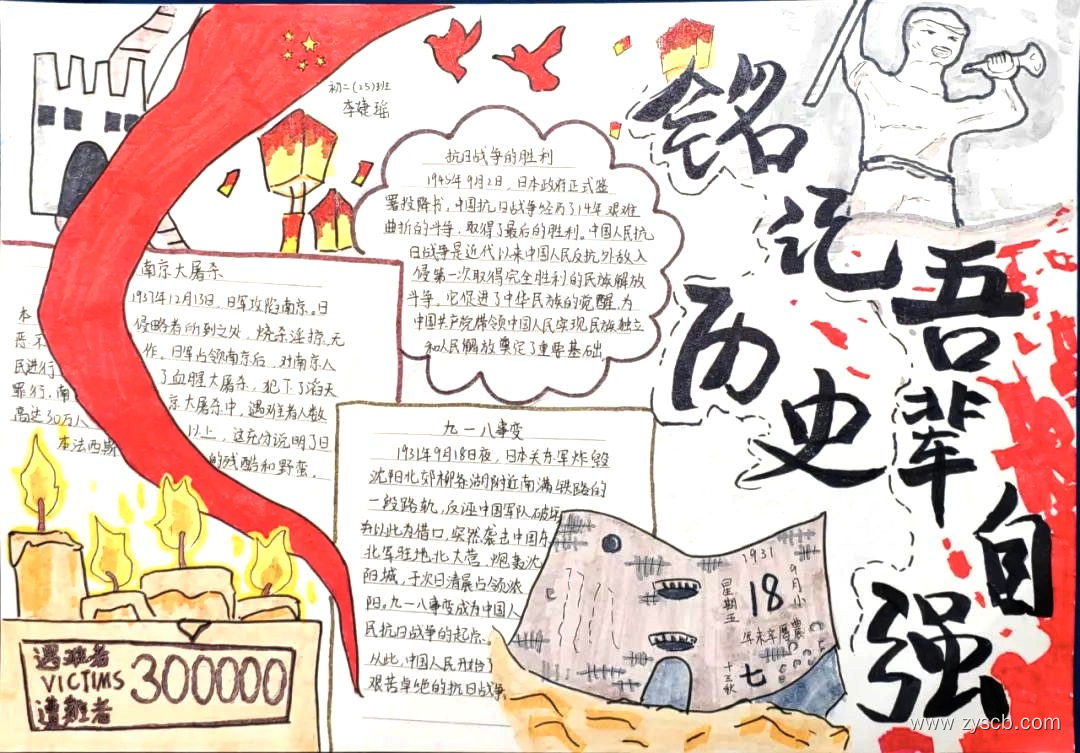 初二(25)班
李婕瑶
铭记历史
吾辈自强
抗日战争的胜利
1945年9月2日，日本政府正式签
署投降书，中国抗日战争经历了14年艰难
曲折的斗争，取得了最后的胜利。中国人民抗
日战争是近代以来中国人民反抗外敌入
侵第一次取得完全胜利的民族解放
斗争，它促进了中华民族的觉醒，为
中国共产党带领中国人民实现民族独立
和人民解放奠定了重要基础
南京大屠杀
1937年12月13日，日军攻陷南京。日
本 侵略者所到之处，烧杀淫掠，无
恶不 作。日军占领南京后，对南京人
民进行 了血腥大屠杀，犯下了滔天
罪行，南 京大屠杀中，遇难者人数
高达30万人 以上，这充分说明了日
本法西斯 的残酷和野蛮。
九一八事变
1931年9月18日夜，日本关东军炸毁
沈阳北郊柳条湖附近南满铁路的
一段路轨，反诬中国军队破坏
并以此为借口，突然袭击中国东
北军驻地北大营，炮轰沈
阳城，于次日清晨占领沈
阳。九一八事变成为中国人
民抗日战争的起点。
从此，中国人民开始了
艰苦卓绝的抗日战争
1931
9月小
18
星期五
年未辛曆農
十三秋
七
遇难者
VICTIMS 300000
遭難者
www.zyscb.com